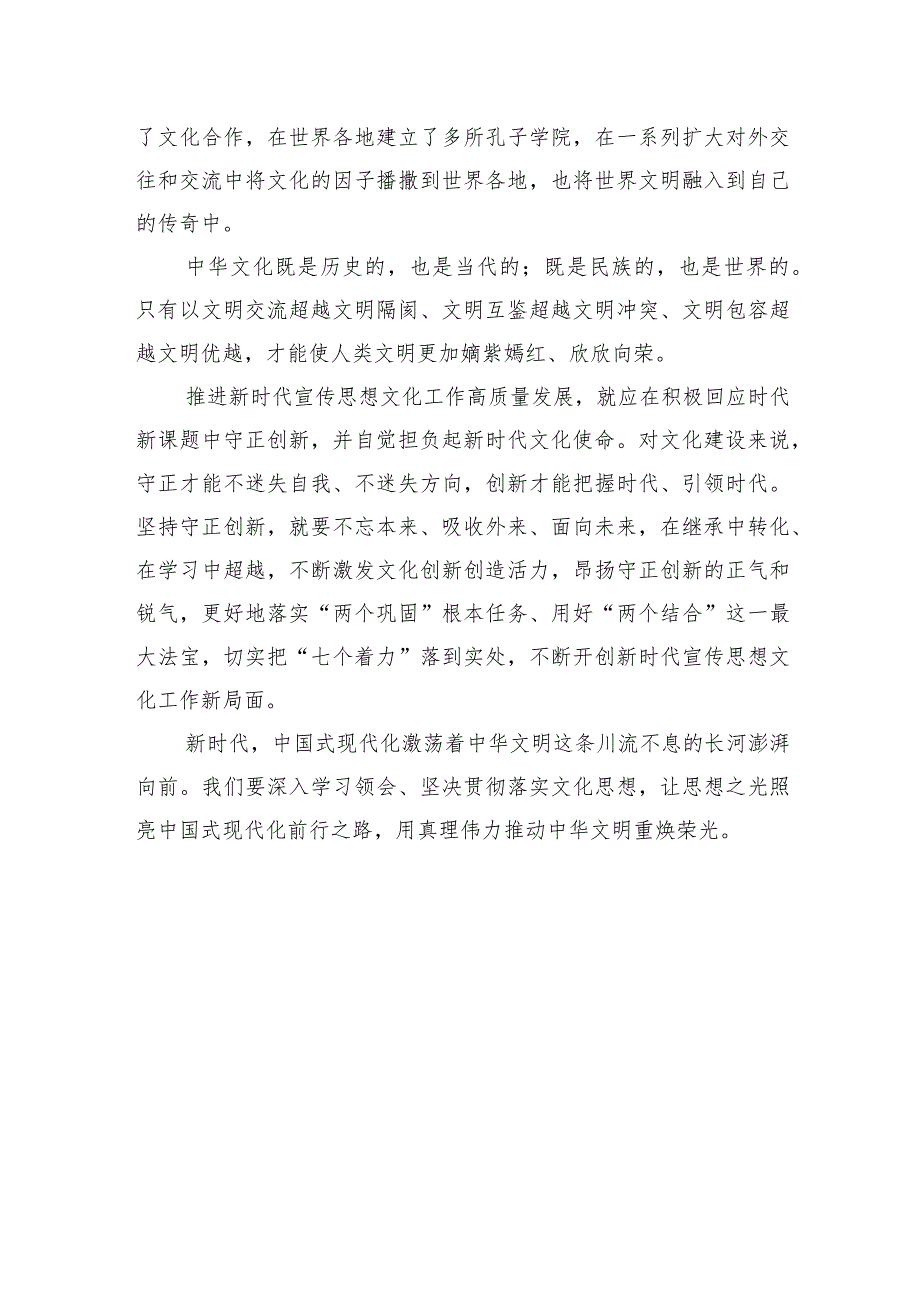 了文化合作，在世界各地建立了多所孔子学院，在一系列扩大对外交
往和交流中将文化的因子播撒到世界各地，也将世界文明融入到自己
的传奇中。
中华文化既是历史的，也是当代的；既是民族的，也是世界的。
只有以文明交流超越文明隔阂、文明互鉴超越文明冲突、文明包容超
越文明优越，才能使人类文明更加嫡紫嫣红、欣欣向荣。
推进新时代宣传思想文化工作高质量发展，就应在积极回应时代
新课题中守正创新，并自觉担负起新时代文化使命。对文化建设来说，
守正才能不迷失自我、不迷失方向，创新才能把握时代、引领时代。
坚持守正创新，就要不忘本来、吸收外来、面向未来，在继承中转化、
在学习中超越，不断激发文化创新创造活力，昂扬守正创新的正气和
锐气，更好地落实“两个巩固”根本任务、用好“两个结合”这一最
大法宝，切实把“七个着力”落到实处，不断开创新时代宣传思想文
化工作新局面。
新时代，中国式现代化激荡着中华文明这条川流不息的长河澎湃
向前。我们要深入学习领会、坚决贯彻落实文化思想，让思想之光照
亮中国式现代化前行之路，用真理伟力推动中华文明重焕荣光。